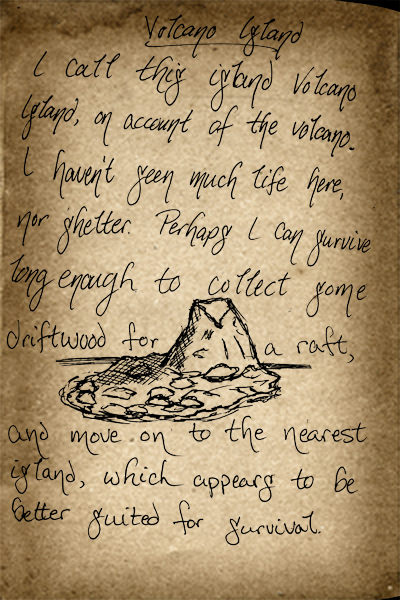 Volcano Island
I call this island Volcano
Island, on account of the volcano.
I haven't seen much life here,
nor shelter. Perhaps I can survive
long enough to collect some
driftwood for a raft,
and move on to the nearest
island, which appears to be
better suited for survival.